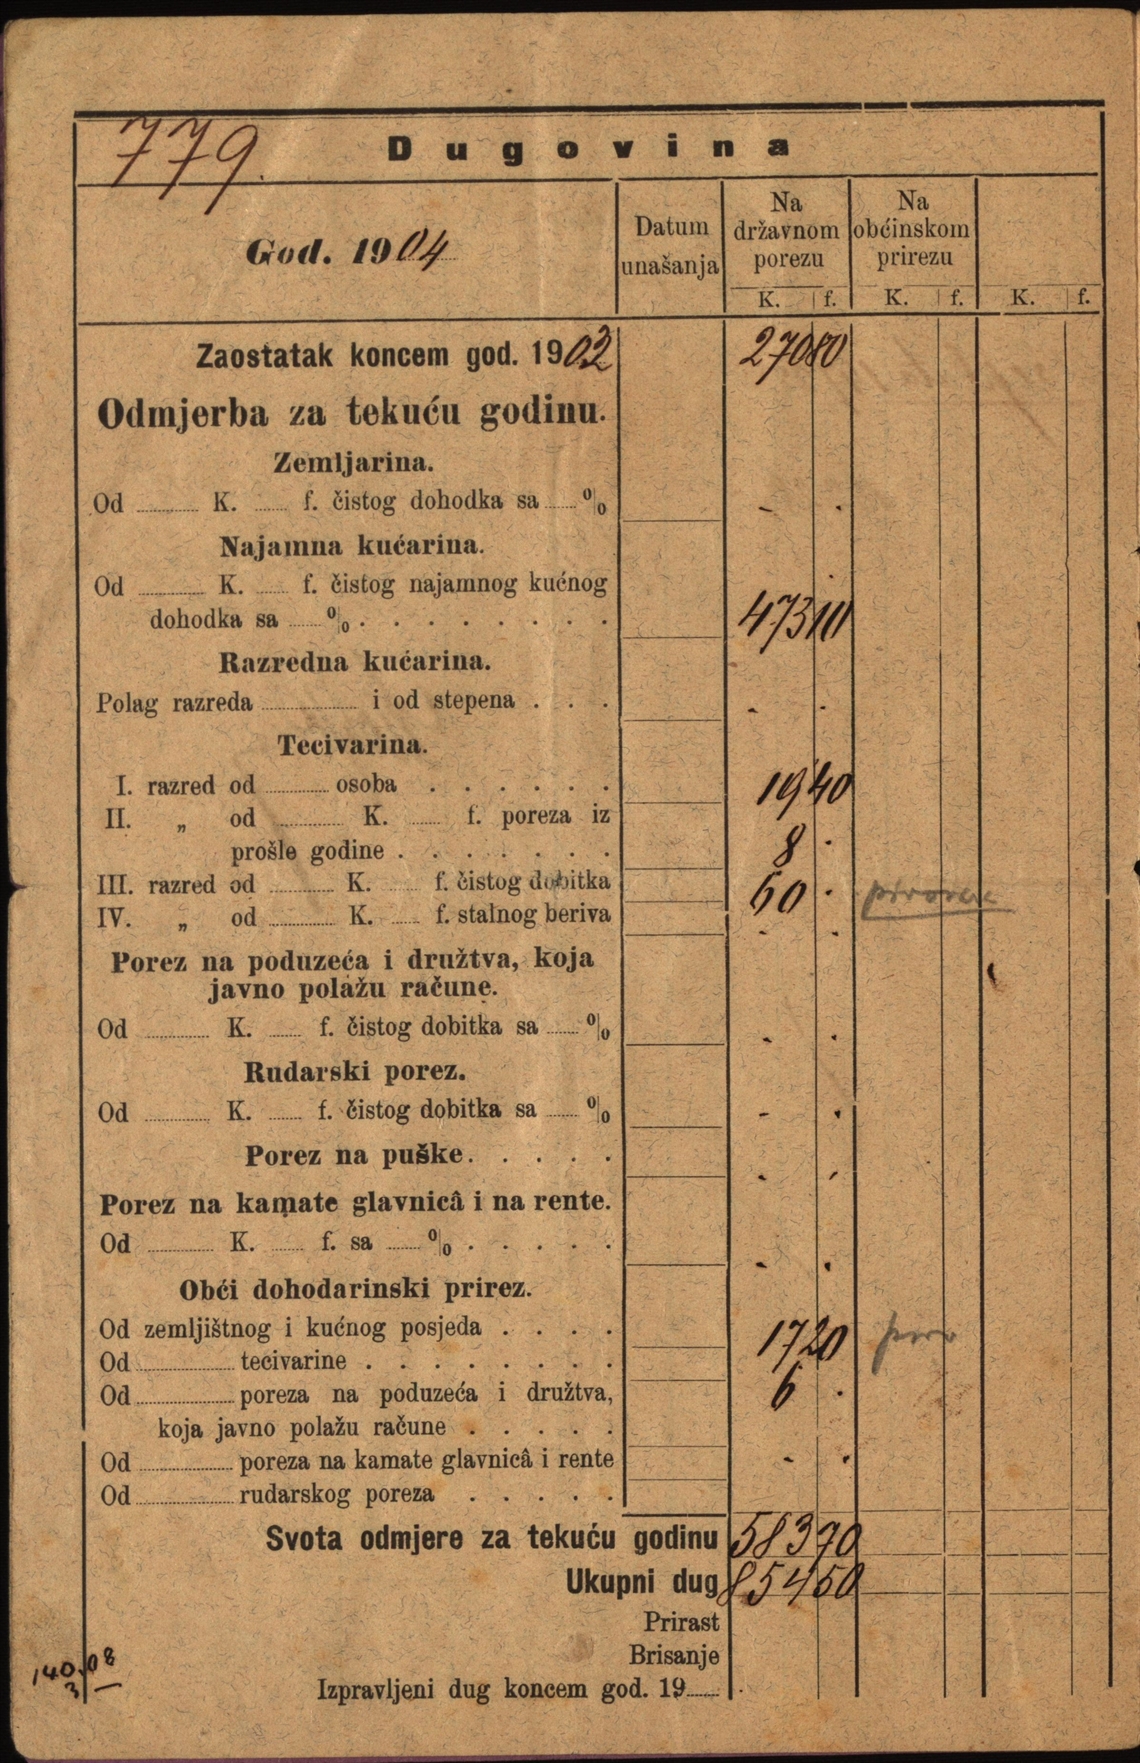 779.
Dugovina
God. 1904
Datum unašanja
Na državnom porezu
Na obćinskom prirezu
K. f. K. f. K. f.
Zaostatak koncem god. 1903 270 80
Odmjerba za tekuću godinu.
Zemljarina.
Od ........ K. ...... f. čistog dohodka sa ...... % - .
Najamna kućarina.
Od ........ K. ...... f. čistog najamnog kućnog
dohodka sa ...... % . . . . . . . . 473 10
Razredna kućarina.
Polag razreda ............ i od stepena . . . - .
Tecivarina.
I. razred od ........ osoba . . . . . . 19 40
II. „ od ........ K. ...... f. poreza iz
prošle godine . . . . . . . 8 .
III. razred od ........ K. ...... f. čistog dobitka 60 .
IV. „ od ........ K. ...... f. stalnog beriva - .
Porez na poduzeća i družtva, koja
javno polažu račune.
Od ........ K. ...... f. čistog dobitka sa ...... % - .
Rudarski porez.
Od ........ K. ...... f. čistog dobitka sa ...... % - .
Porez na puške. . . . . - .
Porez na kamate glavnicâ i na rente.
Od ........ K. ...... f. sa ...... % . . . . . - .
Obći dohodarinski prirez.
Od zemljištnog i kućnog posjeda . . . . 17 20
Od ............ tecivarine . . . . . . . . 6 .
Od ............ poreza na poduzeća i družtva,
koja javno polažu račune . . . . .
Od ............ poreza na kamate glavnicâ i rente - .
Od ............ rudarskog poreza . . . . .
Svota odmjere za tekuću godinu 583 70
Ukupni dug 854 50
Prirast
Brisanje
140.08
3
Izpravljeni dug koncem god. 19......